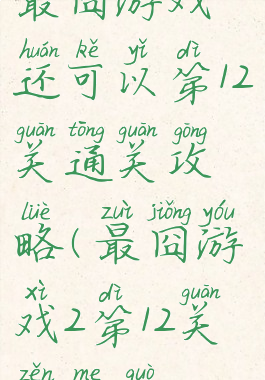 最囧游戏
huán kě yǐ dì
还可以第12
guān tōng guān gōng
关通关攻
lüè zuì jiǒng yóu
略(最囧游
xì dì guān
戏2第12关
zěn me guò